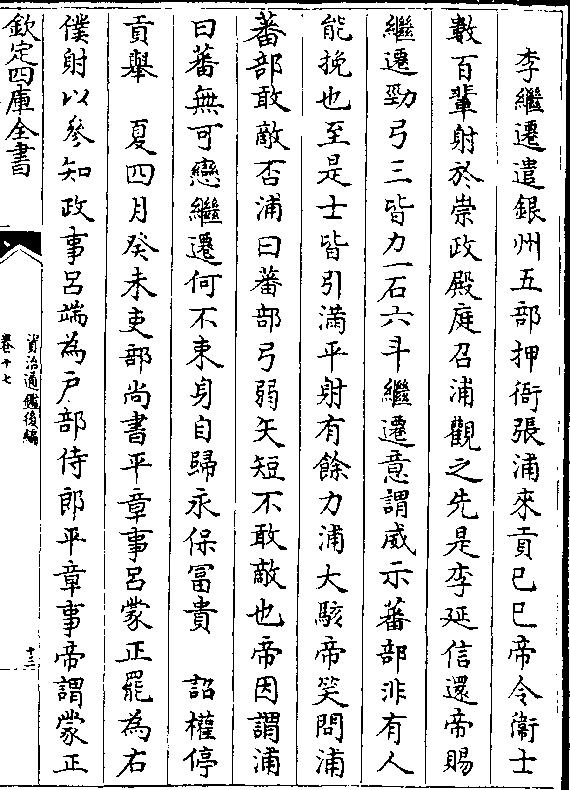 李繼遷遣銀州五部押衙張浦來貢已巳帝令衞士
數百輩射於崇政殿庭召浦觀之先是李延信還帝賜
繼遷勁弓三皆力一石六斗繼遷意謂威示蕃部非有人
能挽也至是士皆引滿平射有餘力浦大駭帝笑問浦
蕃部敢敵否浦曰蕃部弓弱矢短不敢敵也帝因謂浦
曰蕃無可戀繼遷何不束身自歸永保冨貴　詔權停
貢舉　夏四月癸未吏部尚書平章事呂蒙正罷為右
僕射以參知政事呂端為户部侍郎平章事帝謂蒙正
欽定四庫全書
資治通鑑後編
卷十七
十三